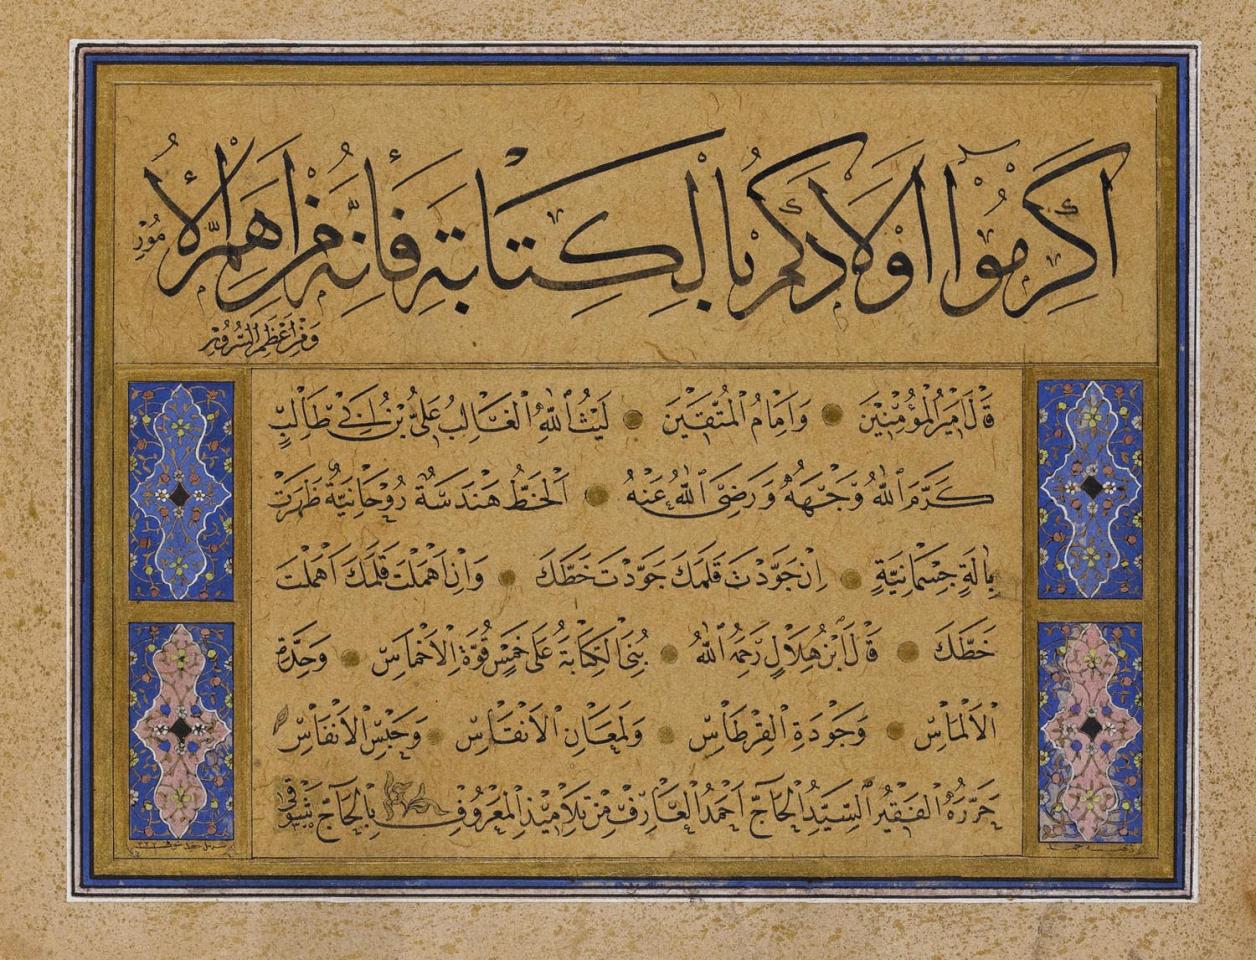 اَكْرِمُوْا اَوْلَادَكُمْ بِالْكِتَابَةِ فَاِنَّهُ مِنْ اَهَمِّ الْاُمُوْرِ
وَمِنْ اَعْظَمِ السُّرُوْرِ
قَالَ اَمِيْرُ الْمُؤْمِنِيْنَ وَاِمَامُ الْمُتَّقِيْنَ لَيْثُ اللّٰهِ الْغَالِبُ عَلِيُّ بْنُ اَبِي طَالِبٍ
كَرَّمَ اللّٰهُ وَجْهَهُ وَرَضِيَ اللّٰهُ عَنْهُ اَلْخَطُّ هَنْدَسَةٌ رُوْحَانِيَّةٌ ظَهَرَتْ
بِاٰلَةٍ جِسْمَانِيَّةٍ اِنْ جَوَّدْتَ قَلَمَكَ جَوَّدْتَ خَطَّكَ وَاِنْ اَهْمَلْتَ قَلَمَكَ اَهْمَلْتَ
خَطَّكَ قَالَ ابْنُ هِلَالٍ رَحِمَهُ اللّٰهُ بُنِيَ الْكِتَابَةُ عَلٰى خَمْسٍ قُوَّةِ الْاَخْمَاسْ وَحِدَّةِ
الْاَلْمَاسْ وَجُوْدَةِ الْقِرْطَاسْ وَلَمَعَانِ الْاَنْقَاسْ وَحَبْسِ الْاَنْفَاسْ
حَرَّرَهُ الْفَقِيْرُ السَّيِّدُ الْحَاجّ اَحْمَدُ الْعَارِفْ مِنْ تَلَامِيْذِ الْمَعْرُوْفِ بِالْحَاجّ